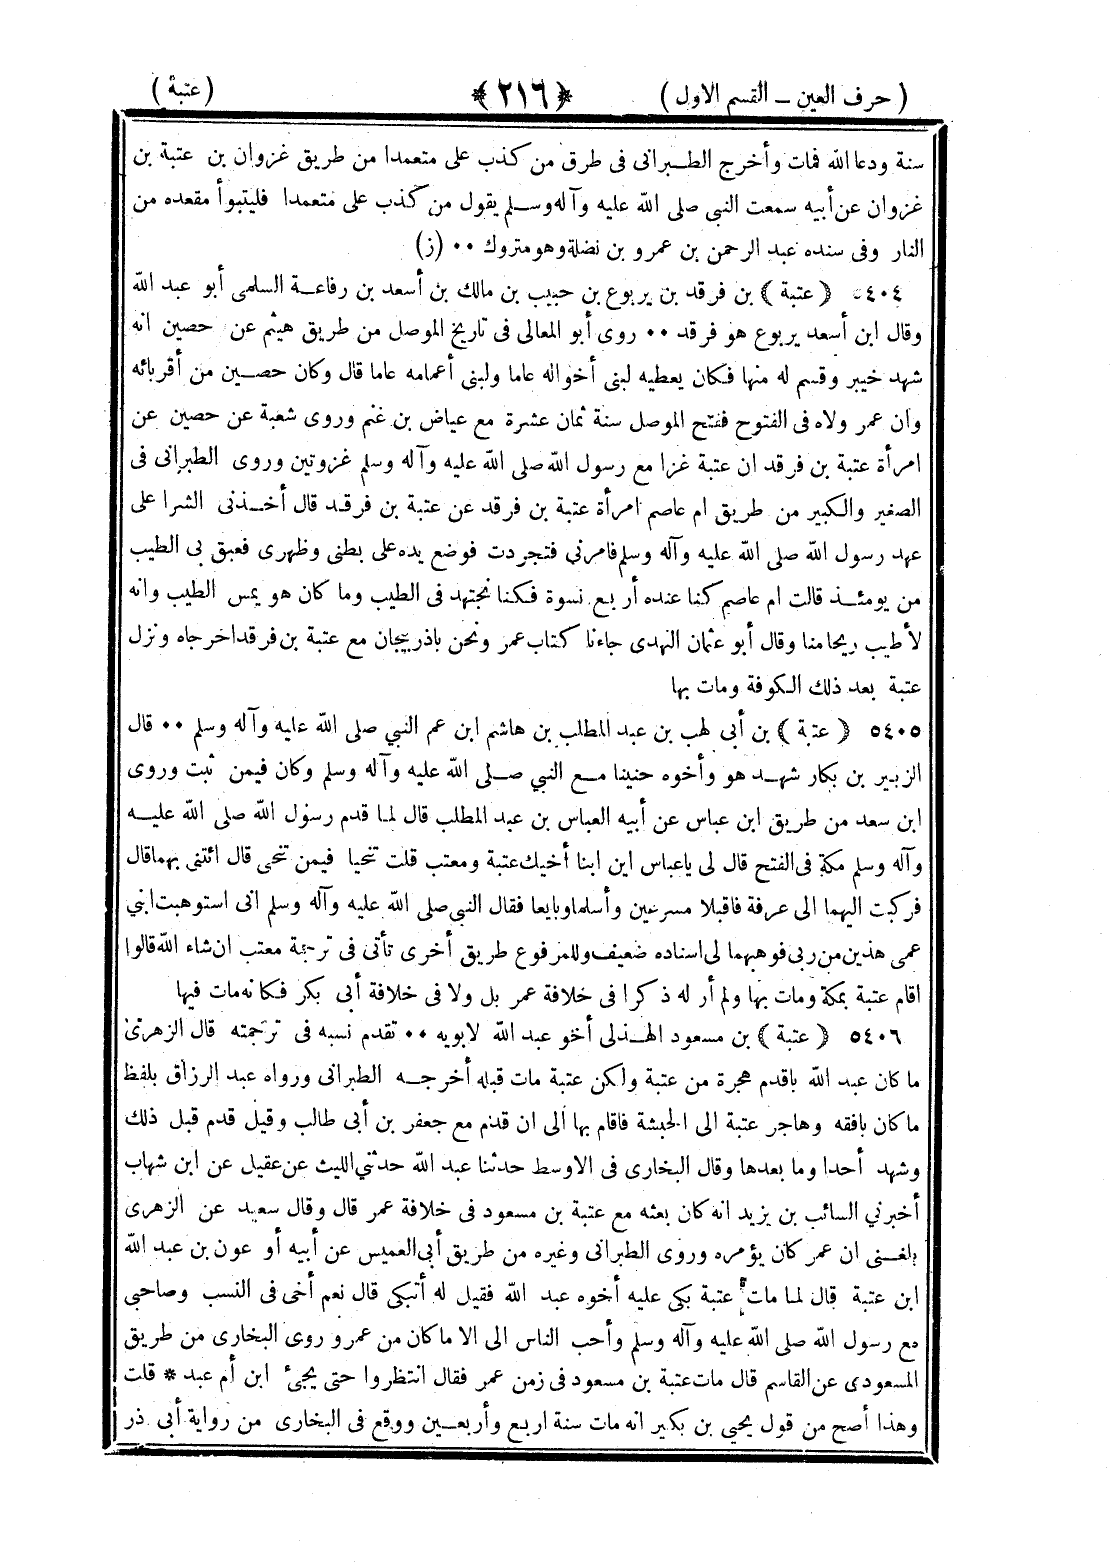 ( حرف العين ــ القسم الاول ) ﴿ ٢١٦ ﴾ ( عتبة )
سنة ودعا الله فمات وأخرج الطبرانى فى طرق من كذب على متعمدا من طريق غزوان بن عتبة بن
غزوان عن أبيه سمعت النبي صلى الله عليه وآله وسلم يقول من كذب على متعمدا فليتبوأ مقعده من
النار وفى سنده عبد الرحمن بن عمرو بن نضلة وهو متروك ٠٠ (ز)
٥٤٠٤ ﴿ عتبة ﴾ بن فرقد بن يربوع بن حبيب بن مالك بن أسعد بن رفاعة السلمى أبو عبد الله
وقال ابن أسعد يربوع هو فرقد ٠٠ روى أبو المعالى فى تاريخ الموصل من طريق هيثم عن حصين انه
شهد خيبر وقسم له منها فكان يعطيه لبنى أخواله عاما ولبنى أعمامه عاما قال وكان حصين من أقربائه
وان عمر ولاه فى الفتوح ففتح الموصل سنة ثمان عشرة مع عياض بن غنم وروى شعبة عن حصين عن
امرأة عتبة بن فرقد ان عتبة غزا مع رسول الله صلى الله عليه وآله وسلم غزوتين وروى الطبرانى فى
الصغير والكبير من طريق ام عاصم امرأة عتبة بن فرقد عن عتبة بن فرقد قال أخذنى الشرا على
عهد رسول الله صلى الله عليه وآله وسلم فامرني فتجردت فوضع يده على بطنى وظهرى فعبق بى الطيب
من يومئذ قالت ام عاصم كنا عنده أربع نسوة فكنا نجتهد فى الطيب وما كان هو يمس الطيب وانه
لأطيب ريحا منا وقال أبو عثمان النهدى جاءنا كتاب عمر ونحن باذربيجان مع عتبة بن فرقد اخرجاه ونزل
عتبة بعد ذلك الكوفة ومات بها
٥٤٠٥ ﴿ عتبة ﴾ بن أبى لهب بن عبد المطلب بن هاشم ابن عم النبي صلى الله عليه وآله وسلم ٠٠ قال
الزبير بن بكار شهد هو وأخوه حنينا مع النبي صلى الله عليه وآله وسلم وكان فيمن ثبت وروى
ابن سعد من طريق ابن عباس عن أبيه العباس بن عبد المطلب قال لما قدم رسول الله صلى الله عليه
وآله وسلم مكة فى الفتح قال لى ياعباس اين ابنا أخيك عتبة ومعتب قلت تنحيا فيمن تنحى قال ائتنى بهما قال
فركبت اليهما الى عرفة فاقبلا مسرعين وأسلما وبايعا فقال النبي صلى الله عليه وآله وسلم انى استوهبت ابني
عمى هذين من ربى فوهبهما لى اسناده ضعيف وللمرفوع طريق أخرى تأتى فى ترجمة معتب ان شاء الله قالوا
اقام عتبة بمكة ومات بها ولم أر له ذكرا فى خلافة عمر بل ولا فى خلافة أبى بكر فكانه مات فيها
٥٤٠٦ ﴿ عتبة ﴾ بن مسعود الهذلى أخو عبد الله لابويه ٠٠ تقدم نسبه فى ترجمته قال الزهرى
ما كان عبد الله باقدم هجرة من عتبة ولكن عتبة مات قبله أخرجه الطبرانى ورواه عبد الرزاق بلفظ
ما كان بافقه وهاجر عتبة الى الحبشة فاقام بها الى ان قدم مع جعفر بن أبى طالب وقيل قدم قبل ذلك
وشهد أحدا وما بعدها وقال البخارى فى الاوسط حدثنا عبد الله حدثني الليث عن عقيل عن ابن شهاب
أخبرني السائب بن يزيد انه كان بعثه مع عتبة بن مسعود فى خلافة عمر قال وقال سعيد عن الزهرى
بلغنى ان عمر كان يؤمره وروى الطبرانى وغيره من طريق أبى العميس عن أبيه أو عون بن عبد الله
ابن عتبة قال لما مات عتبة بكى عليه أخوه عبد الله فقيل له أتبكى قال نعم أخى فى النسب وصاحبى
مع رسول الله صلى الله عليه وآله وسلم وأحب الناس الى الا ما كان من عمر و روى البخارى من طريق
المسعودى عن القاسم قال مات عتبة بن مسعود فى زمن عمر فقال انتظروا حتى يجئ ابن أم عبد * قلت
وهذا أصح من قول يحيي بن بكير انه مات سنة اربع وأربعين ووقع فى البخارى من رواية أبى ذر